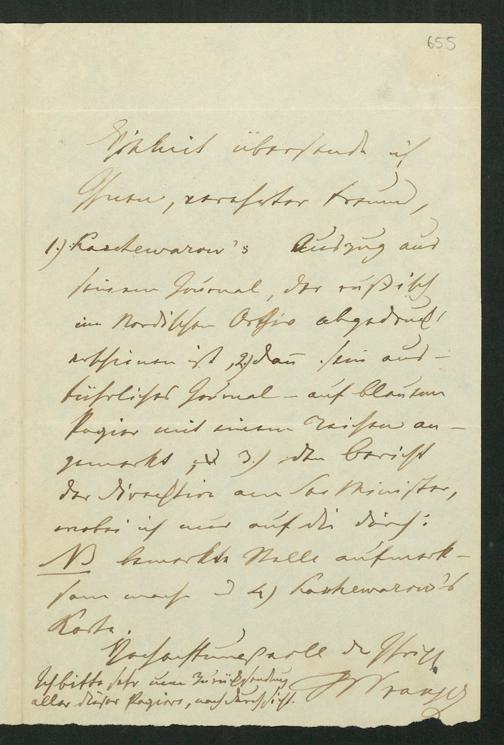 655
Hiebei übersende ich
Ihnen, verehrter Freund,
1.) Kaschewarow's Auszug aus
seinem Journal, der rußisch
im Nordischen Archiv abgedruckt
erschienen ist, 2) dan̄ sein aus-
führliches Journal – auf blauem
Papier mit einem Zeichen an-
gemerkt, 3.) den Bericht
der Direktion an See Minister,
wobei ich nur auf die durch:
NB bemerkte Stelle aufmerk-
sam mache 4) Kaschewarow's
Karte.
Hochachtungsvoll der Ihrige
Wrangel
Ich bitte sehr um Zurücksendung
aller dieser Papiere, nach Durchsicht.